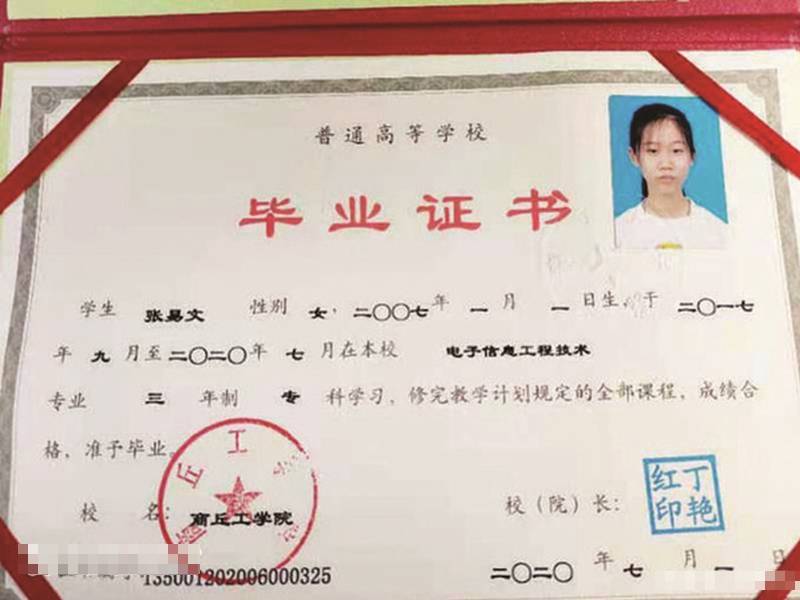 普通高等学校
毕业证书
学生 张易文 性别 女，二〇〇七年 一月 一日生，于 二〇一七
年 九 月至二〇二〇年 七 月在本校 电子信息工程技术
专业 三 年制 专 科学习，修完教学计划规定的全部课程，成绩合
格，准予毕业。
丘工
校 名：商丘工学院
校（院）长：
红丁
印艳
135001202006000325
二〇二〇 年 七 月 一 日